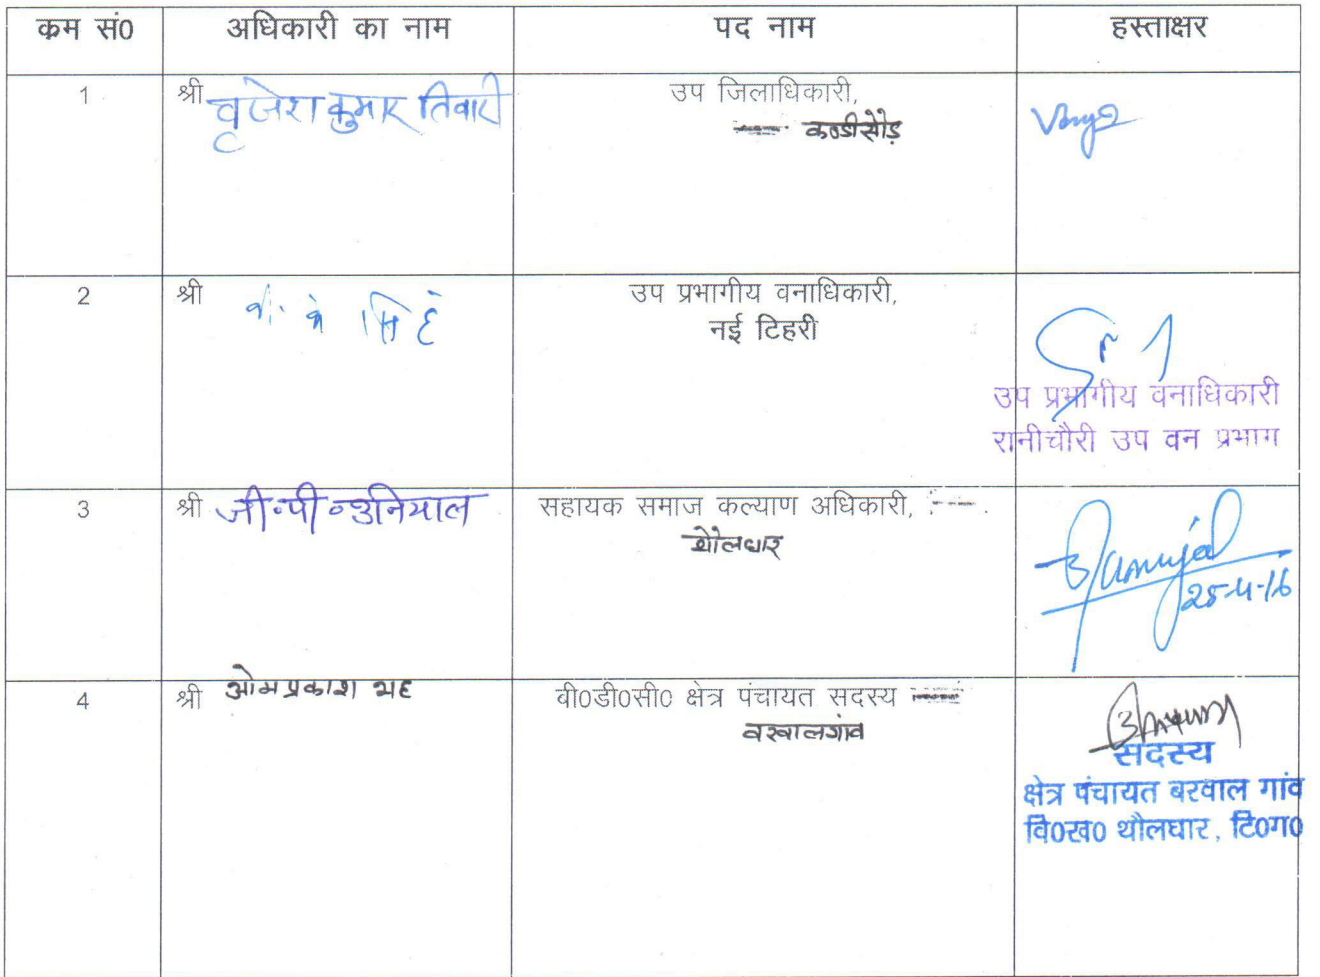 कम सं0 अधिकारी का नाम पद नाम हस्ताक्षर
1 श्री वृजेश कुमार तिवारी उप जिलाधिकारी,
कण्डीसौड़
2 श्री वी. के सिंह उप प्रभागीय वनाधिकारी,
नई टिहरी
उप प्रभागीय वनाधिकारी
रानीचौरी उप वन प्रभाग
3 श्री जी०पी०उनियाल सहायक समाज कल्याण अधिकारी,
थौलधार
25-4-16
4 श्री ओमप्रकाश भट्ट वी0डी0सी0 क्षेत्र पंचायत सदस्य
वरवालगांव
सदस्य
क्षेत्र पंचायत बरवाल गांव
वि0ख0 थौलधार, टि0ग0